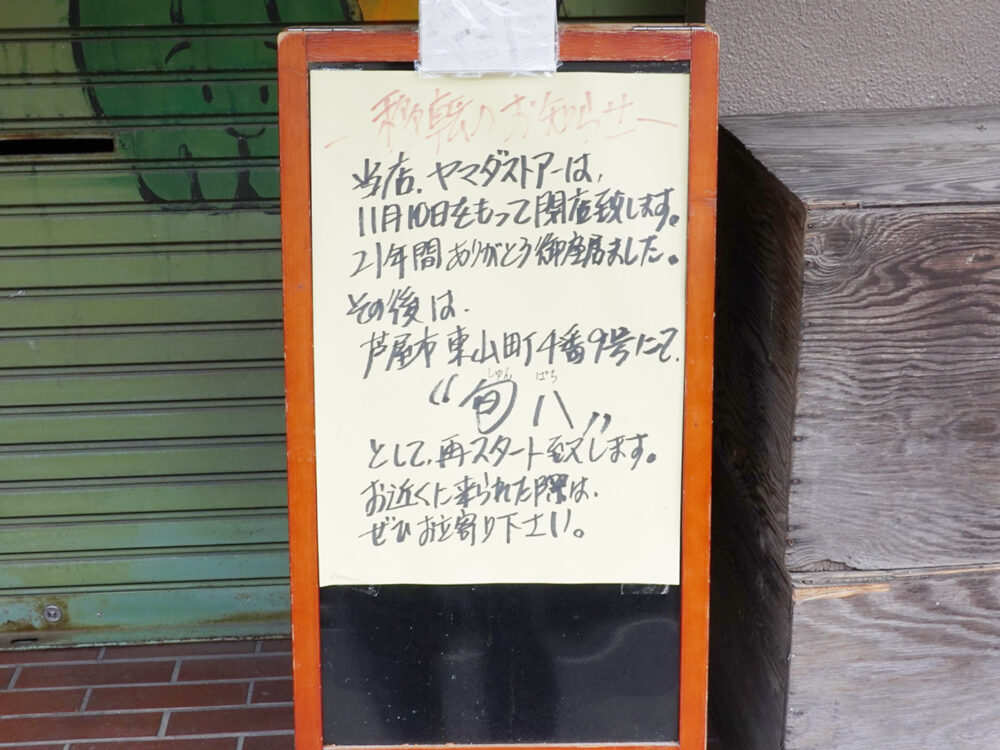 移転のお知らせ
当店、ヤマダストアーは、
11月10日をもって閉店致します。
21年間ありがとう御座居ました。
その後は、
芦屋市東山町4番9号にて、
しゅん ぱち
“旬八”
として、再スタート致します。
お近くに来られた際は、
ぜひお立寄り下さい。